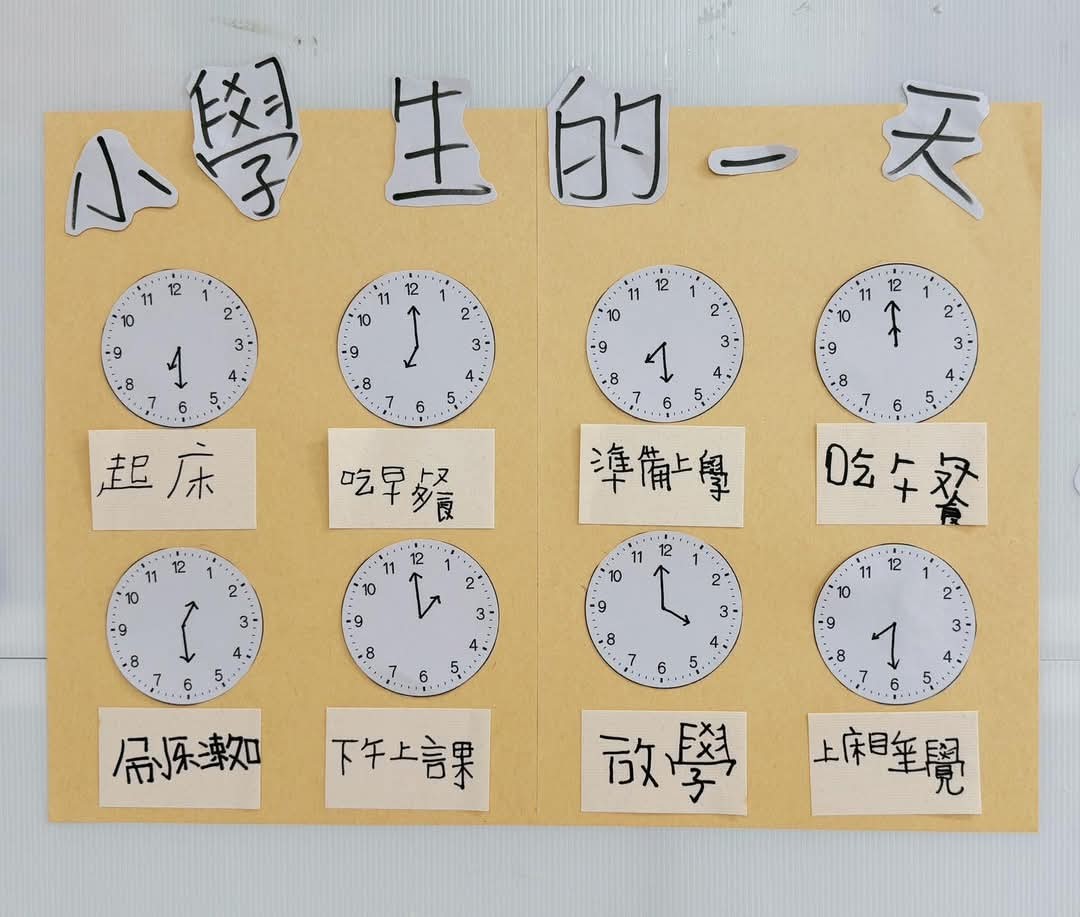 小學生的一天
12 1 2 3 4 5 6 7 8 9 10 11
12 1 2 3 4 5 6 7 8 9 10 11
12 1 2 3 4 5 6 7 8 9 10 11
12 1 2 3 4 5 6 7 8 9 10 11
起床
吃早餐
準備上學
吃午餐
12 1 2 3 4 5 6 7 8 9 10 11
12 1 2 3 4 5 6 7 8 9 10 11
12 1 2 3 4 5 6 7 8 9 10 11
12 1 2 3 4 5 6 7 8 9 10 11
刷漱
下午上課
放學
上床睡覺